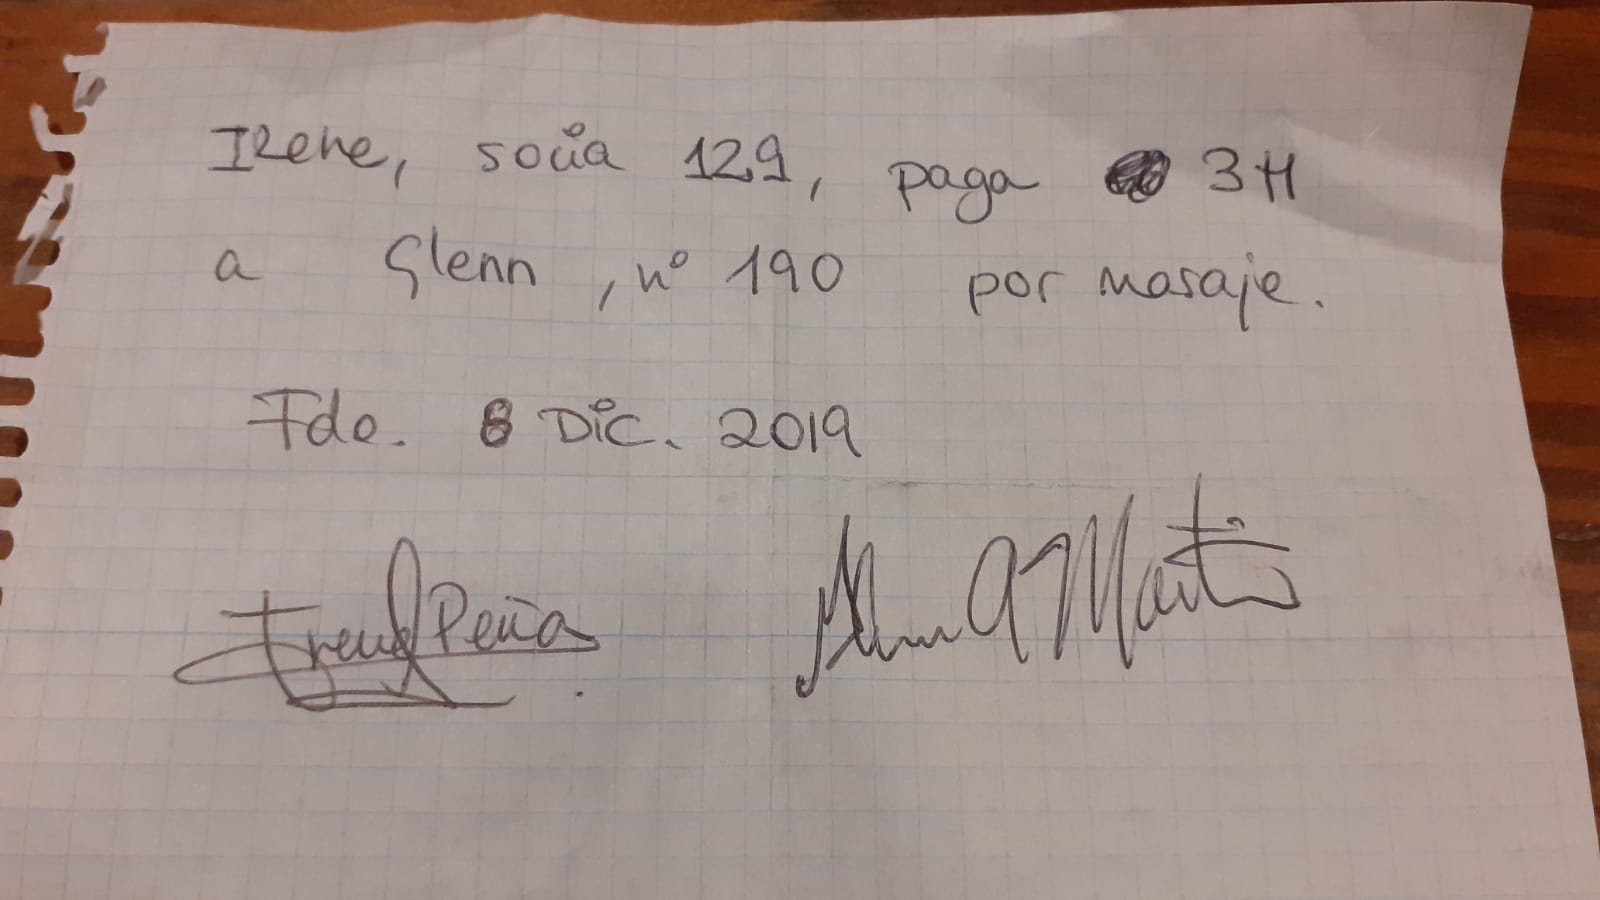 Irene, socia 129, paga 3H
a Glenn, nº 190 por masaje.
Fdo. 8 Dic. 2019
Irene Peña